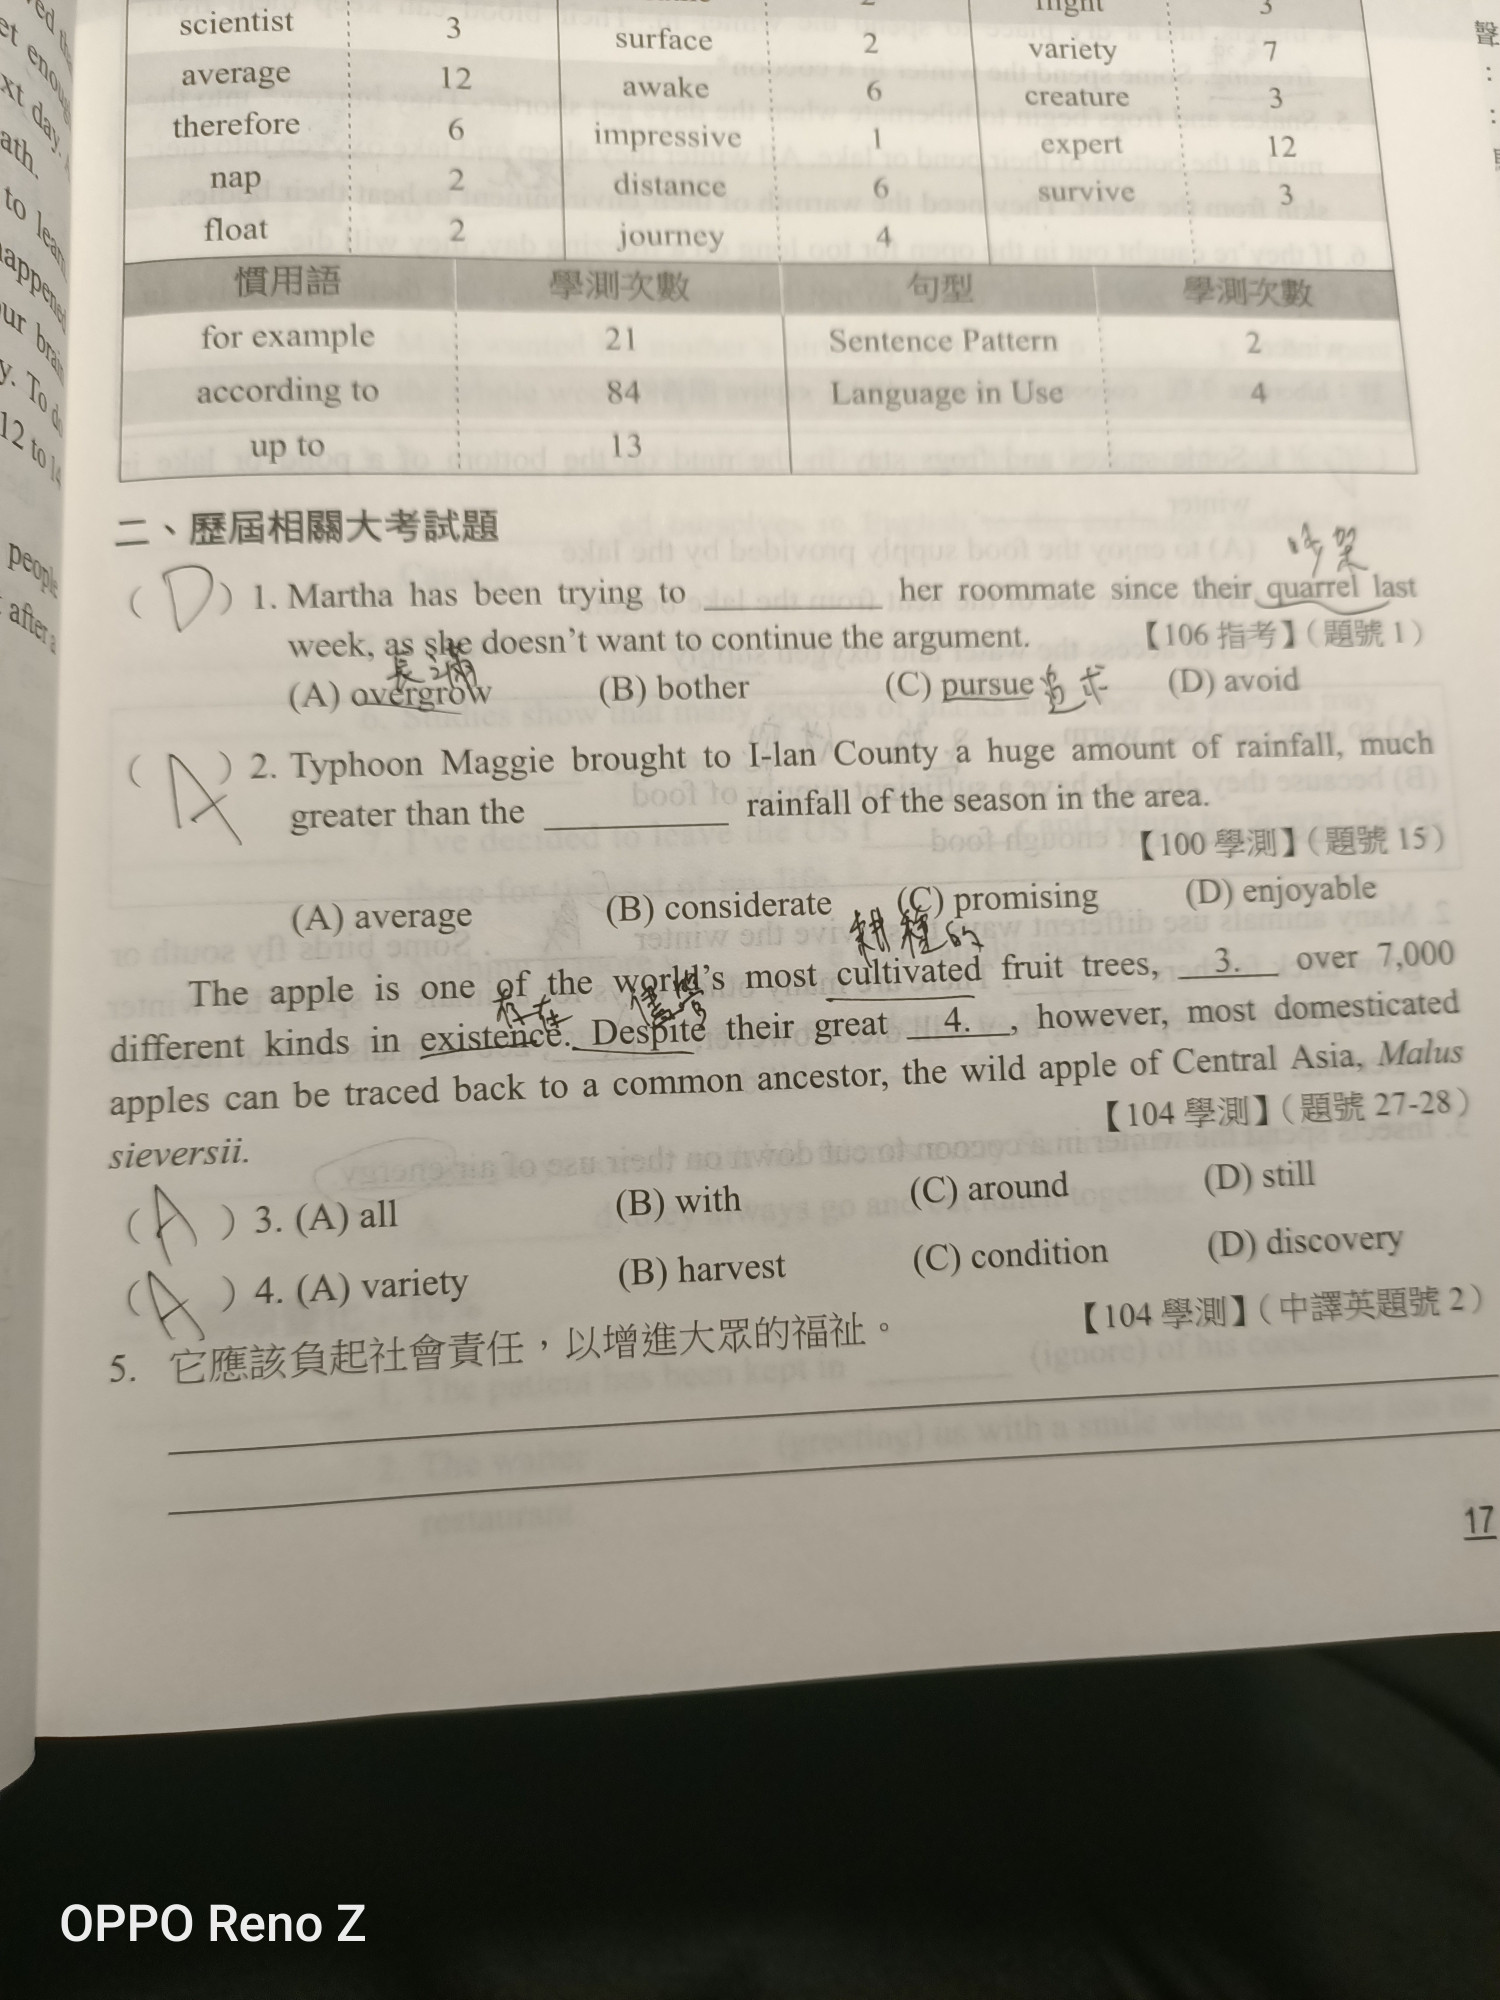 scientist 3 surface 2 flight 3
average 12 awake 6 variety 7
therefore 6 impressive 1 creature 3
nap 2 distance 6 expert 12
float 2 journey 4 survive 3
慣用語 學測次數 句型 學測次數
for example 21 Sentence Pattern 2
according to 84 Language in Use 4
up to 13
二、歷屆相關大考試題
吵架
( D ) 1. Martha has been trying to ________ her roommate since their quarrel last
week, as she doesn't want to continue the argument. 【106 指考】(題號 1)
長滿
(A) overgrow (B) bother (C) pursue 追求 (D) avoid
( A ) 2. Typhoon Maggie brought to I-lan County a huge amount of rainfall, much
greater than the ________ rainfall of the season in the area.
【100 學測】(題號 15)
(A) average (B) considerate (C) promising (D) enjoyable
耕種的
The apple is one of the world's most cultivated fruit trees, 3. over 7,000
存在 儘管
different kinds in existence. Despite their great 4. , however, most domesticated
apples can be traced back to a common ancestor, the wild apple of Central Asia, Malus
sieversii. 【104 學測】(題號 27-28)
( A ) 3. (A) all (B) with (C) around (D) still
( A ) 4. (A) variety (B) harvest (C) condition (D) discovery
5. 它應該負起社會責任，以增進大眾的福祉。 【104 學測】(中譯英題號 2)
17
OPPO Reno Z